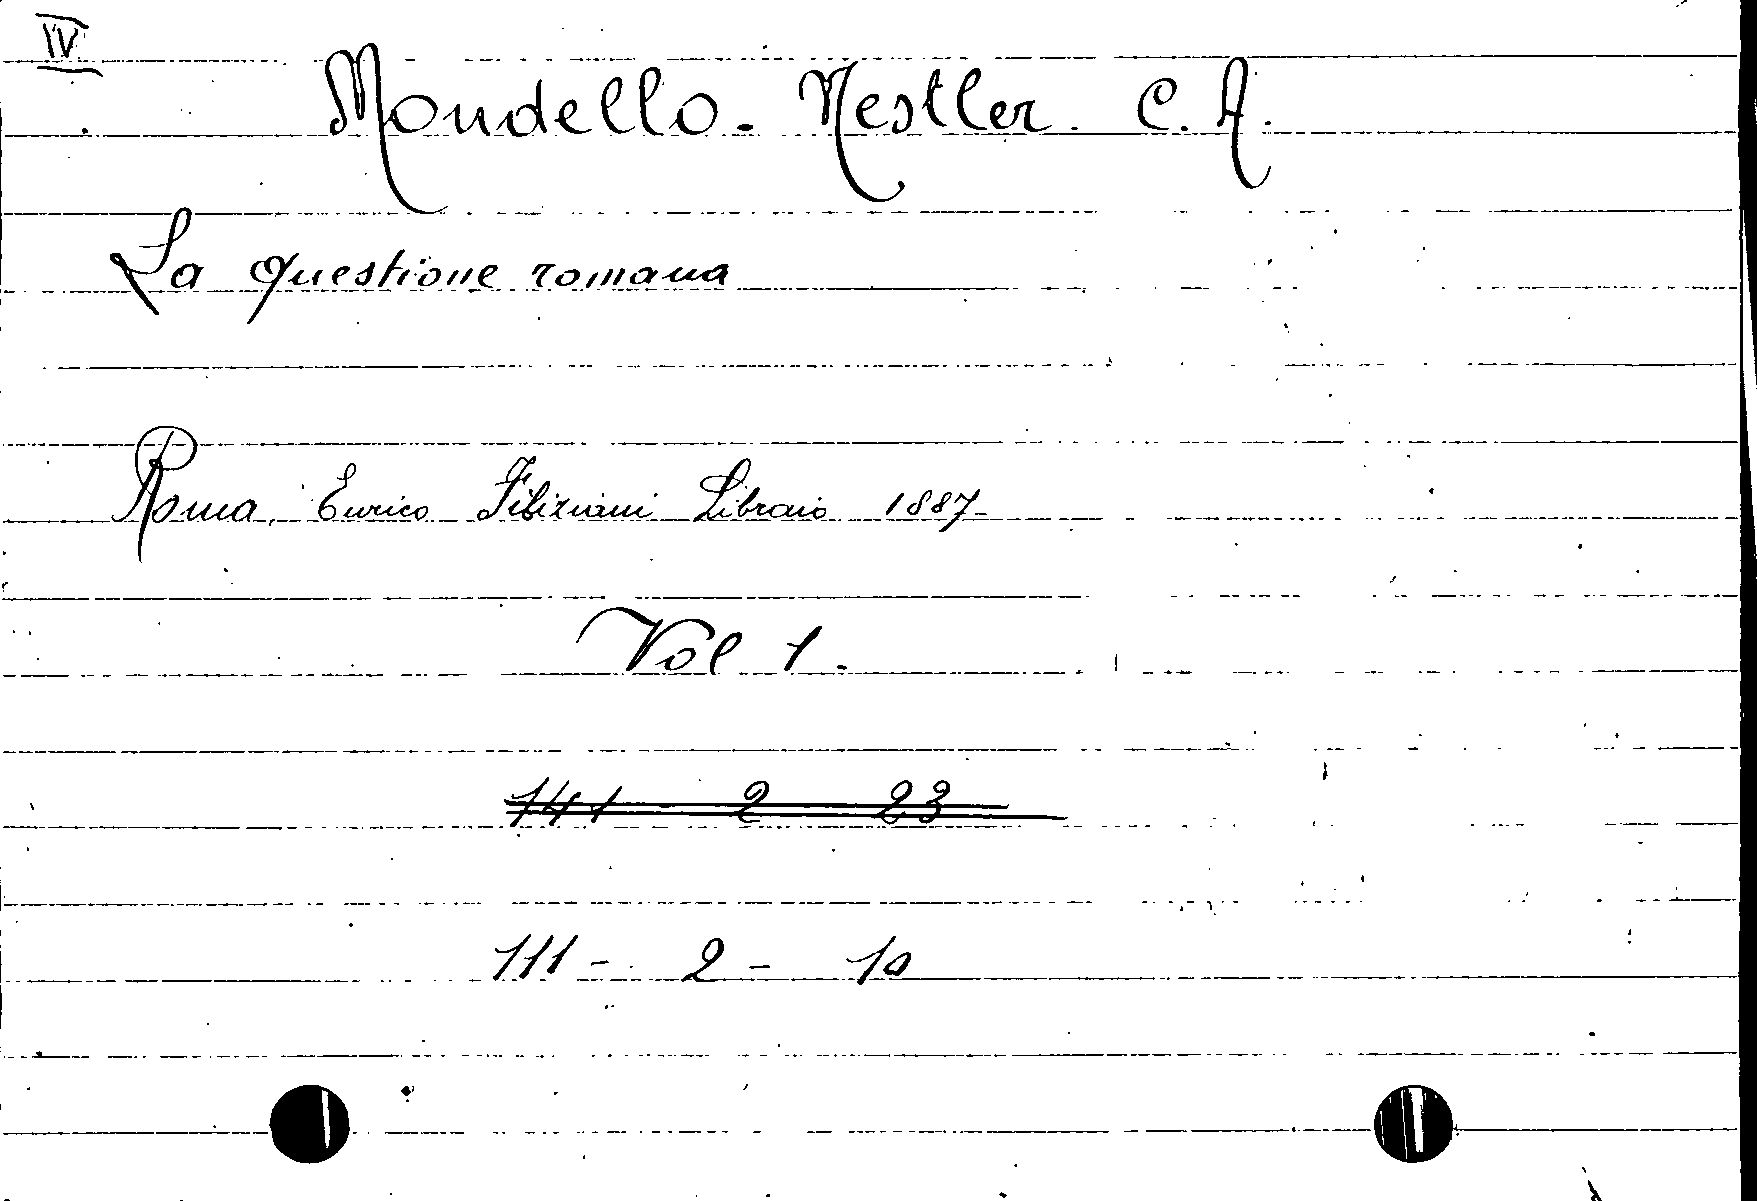 IV
Mondello. Nestler C. A.
La questione romana
Roma, Enrico Filiziani Libraio 1887
Vol 1.
141 2 23
111 - 2 - 10